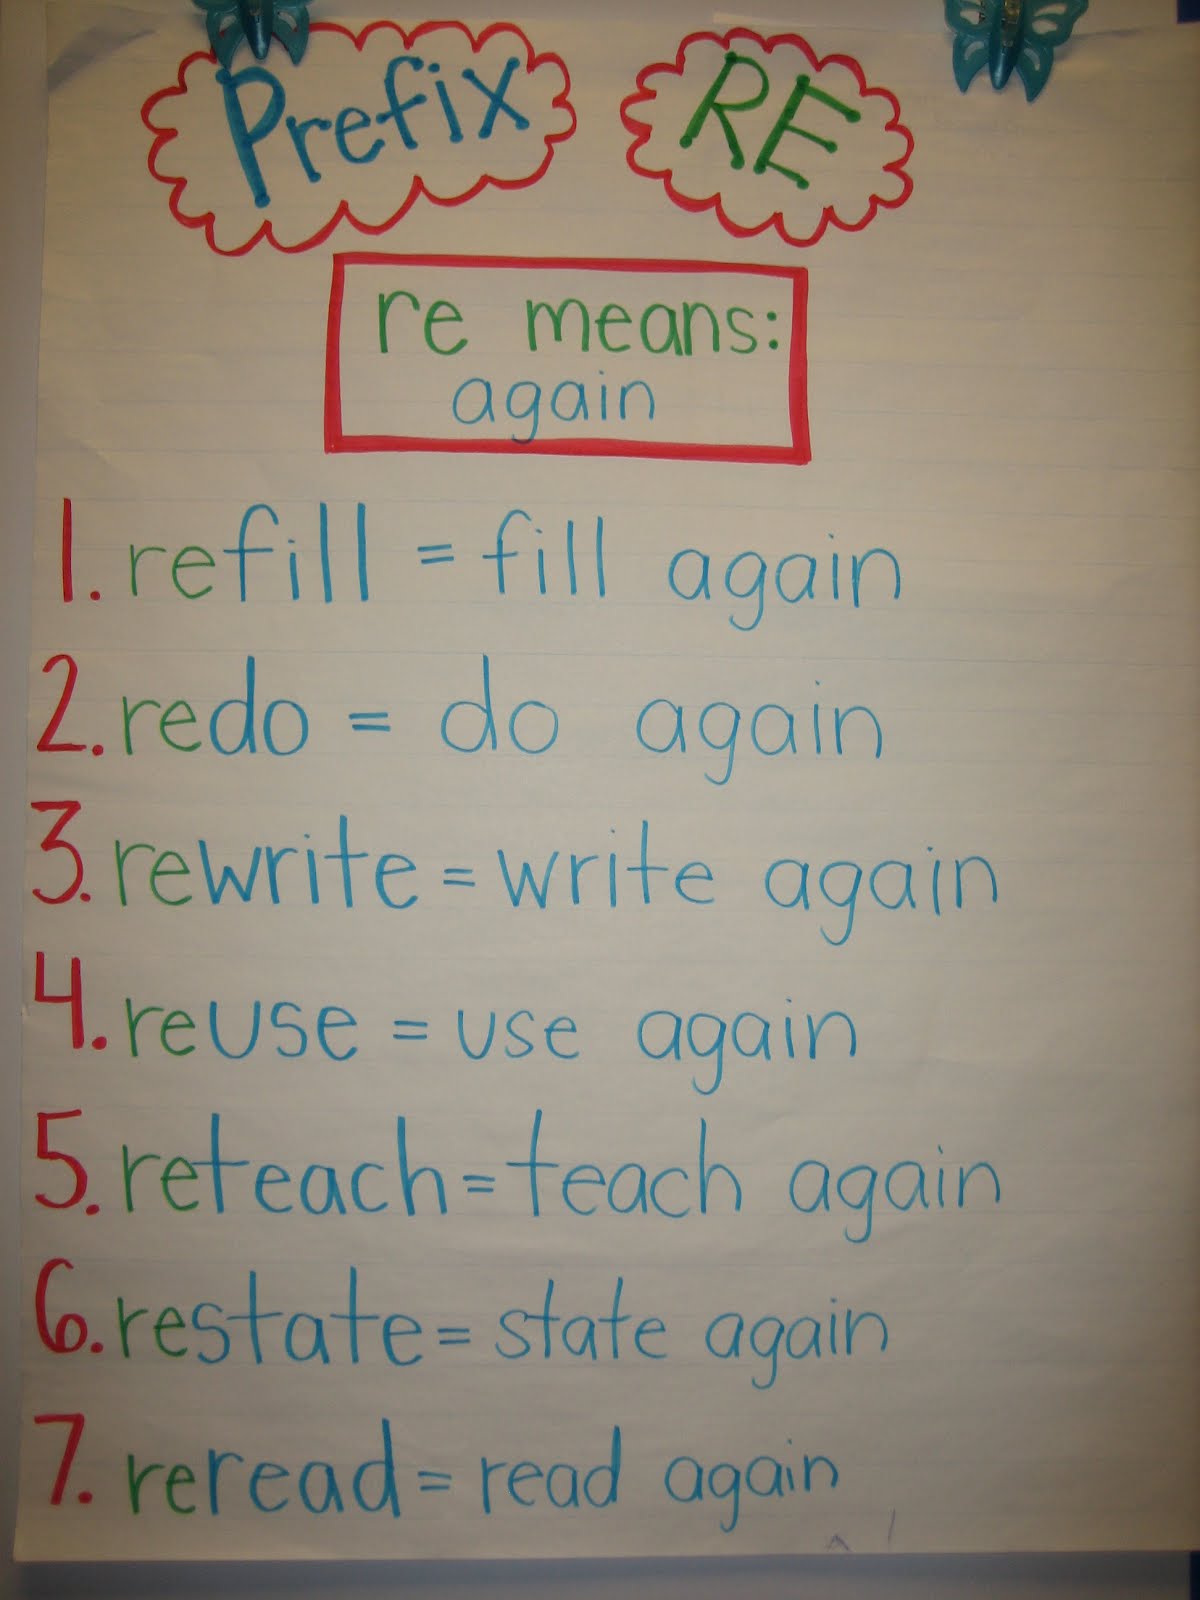 Prefix RE
re means:
again
1. refill = fill again
2. redo = do again
3. rewrite = write again
4. reuse = use again
5. reteach = teach again
6. restate = state again
7. reread = read again